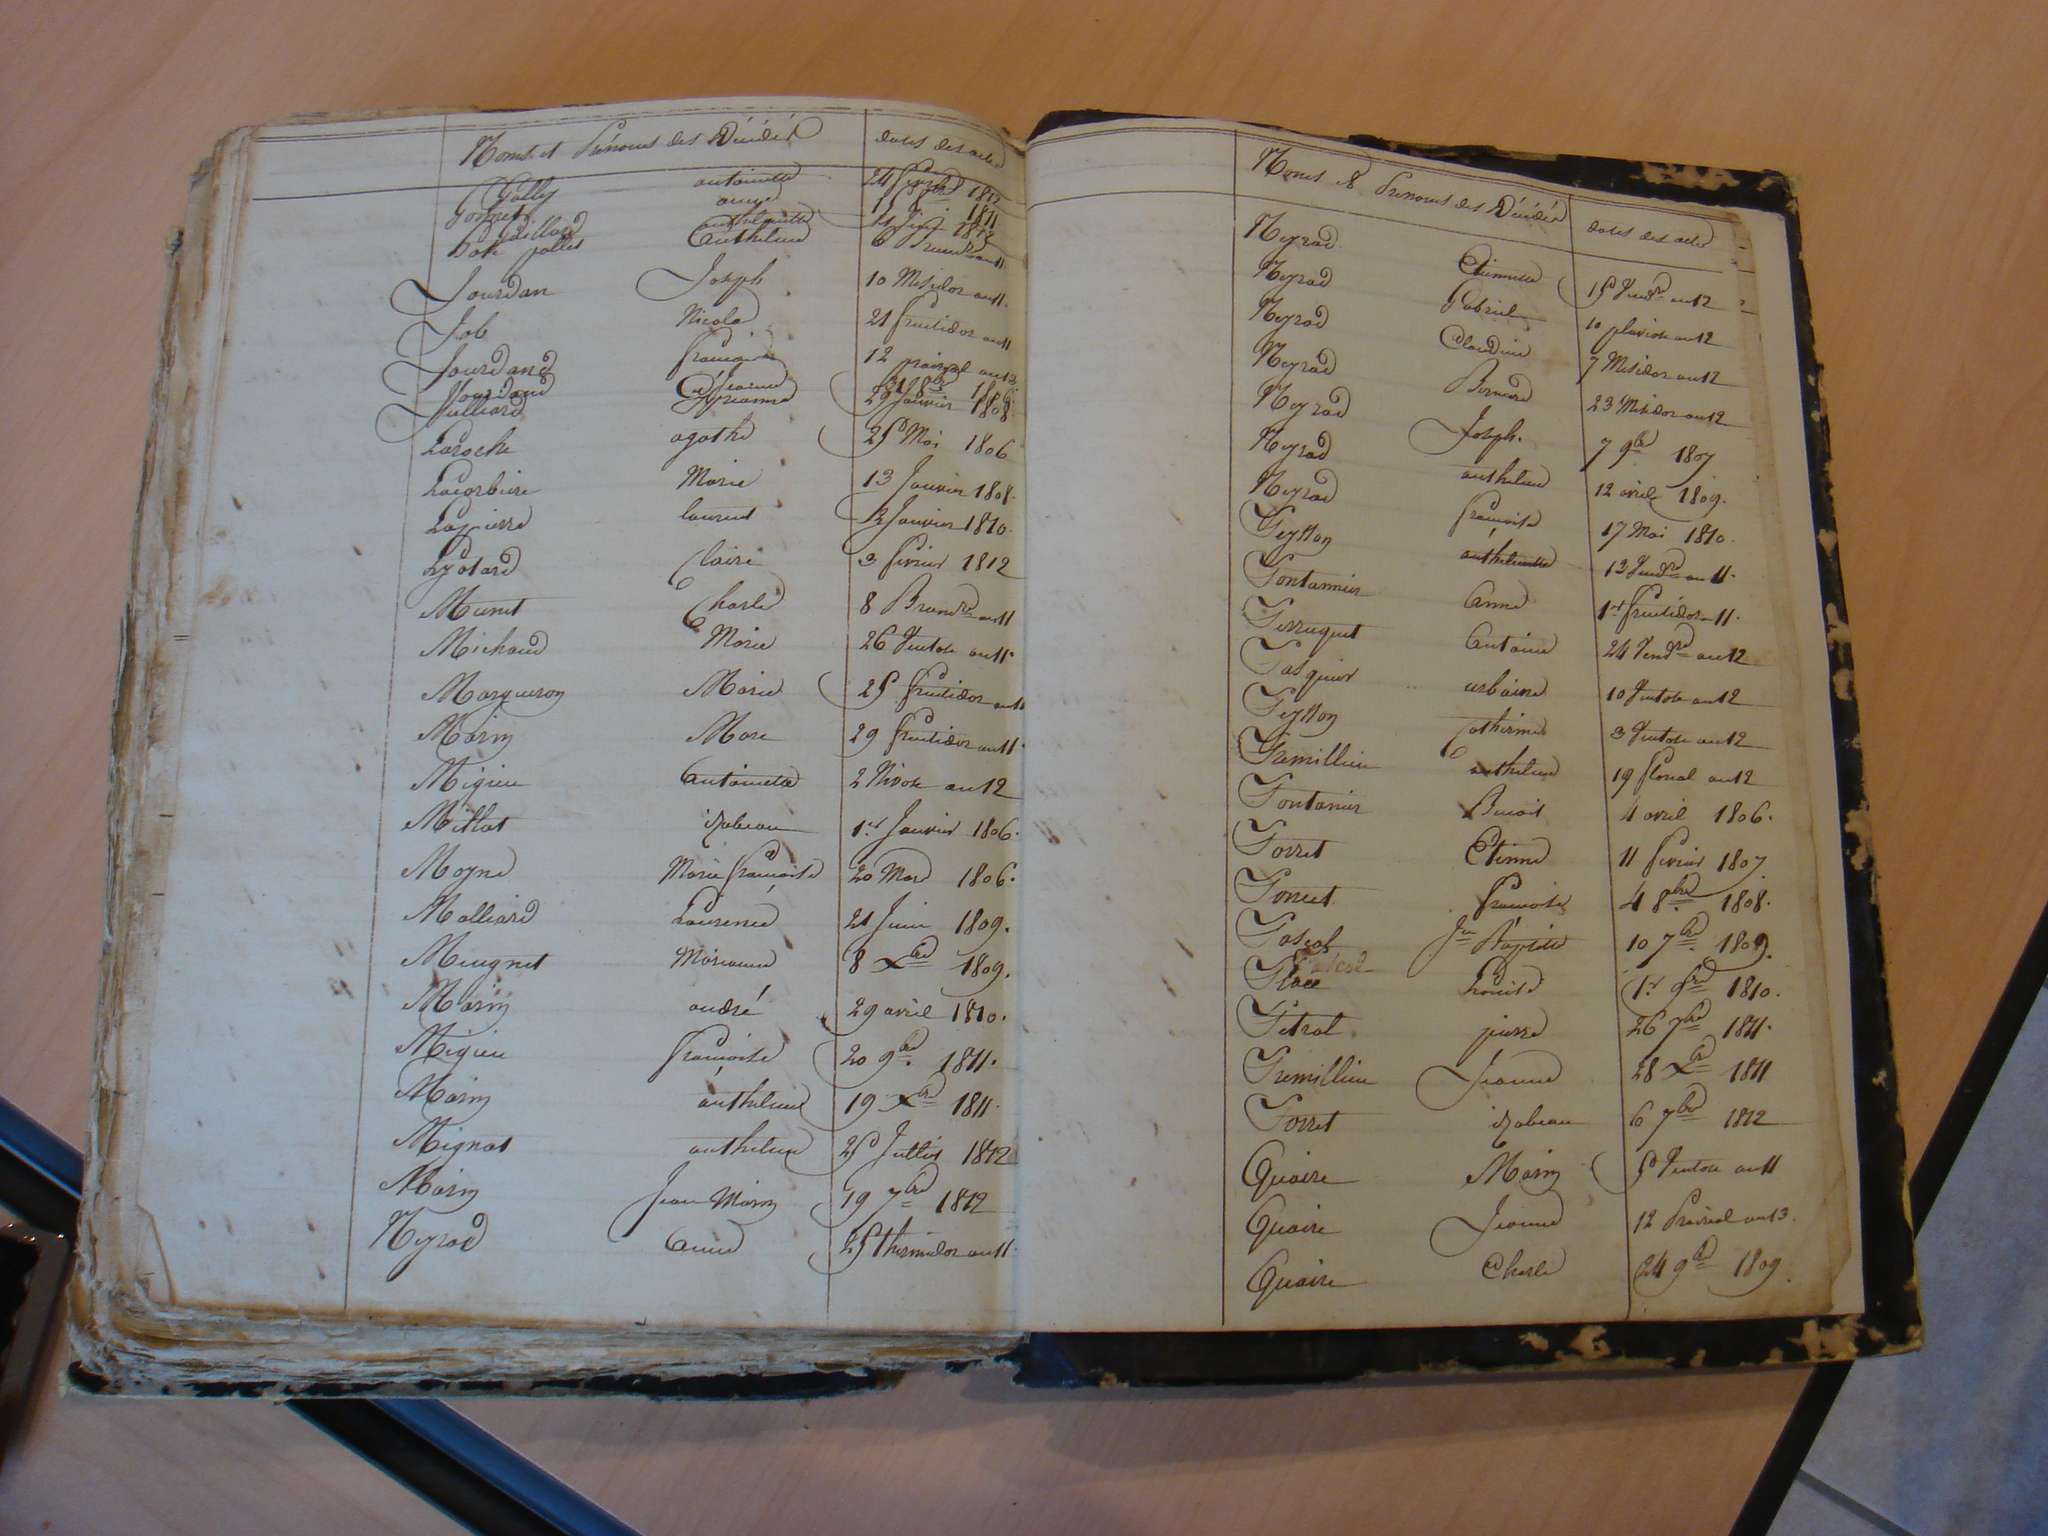 Noms et Prénoms des Décédés dates des actes
Jolly antoinette 1812
anne 1811
1812
Anthelme 6 an 11
Jourdan Joseph 10 Messidor an 11.
Job Nicolas 21 fructidor an 11
Jourdand françois 12 prairial an 13
Jourdand Jeanne 8bre
Julliard Cyprianne 29 Janvier 1808
Laroche agathe 25 Mai 1806
Lacorbiere Marie 13 Janvier 1808.
Lapierre laurent Janvier 1810.
Lyotard Claire 3 fevrier 1812
Munet Charle 8 Brumre an 11
Michaud Marie 26 Ventose an 11.
Marqueron Marie 25 fructidor an 11
Marin Marc 29 fructidor an 11.
Migieu Antoinette 2 Nivose an 12
Millat izabeau 1er Janvier 1806.
Moyne Marie françoise 20 Mars 1806.
Malliard Laurence 21 Juin 1809.
Meugnet Marianne 8 Xbre 1809.
Marin andré 29 avril 1810.
Migieu françoise 20 9bre 1811.
Marin anthelme 19 Xbre 1811.
Mignat anthelme 25 Juillet 1812
Marin Jean Marin 19 7bre 1812
Neyrad Anne 25 thermidor an 11.
Noms et Prenoms des Décédés dates des actes
Neyrad Etiennette 15 Vendre an 12
Neyrad Gabriel 10 pluviose an 12
Neyrad Claudine 7 Messidor an 12
Neyrad Bernard 23 Messidor an 12
Neyrad Joseph. 7 9bre 1807
Neyrad anthelme 12 avril 1809.
Neyrad françoise 17 Mai 1810.
Peysson anthelmette 13 Vendre an 11.
Pontannier Anne 1er fructidor 11.
Perruquet Antoine 24 Vendre an 12
Pasquier urbaine 10 Ventose an 12
Peysson Catherine 3 Ventose an 12
Pramillieu anthelme 19 floreal an 12
Pontanier Benoit 4 avril 1806.
Porret Etienne 11 fevrier 1807
Poncet françoise 4 8bre 1808.
Pascal Jn Baptiste 10 7bre 1809.
Pascal
Place Louise 1er 9bre 1810.
Pétral pierre 26 7bre 1811.
Premillieu Jeanne 28 Xbre 1811
Porret izabeau 6 7bre 1812
Quaire Marin 5 Ventose an 11
Quaire Jeanne 12 Prairial an 13.
Quaire Charle 24 9bre 1809.